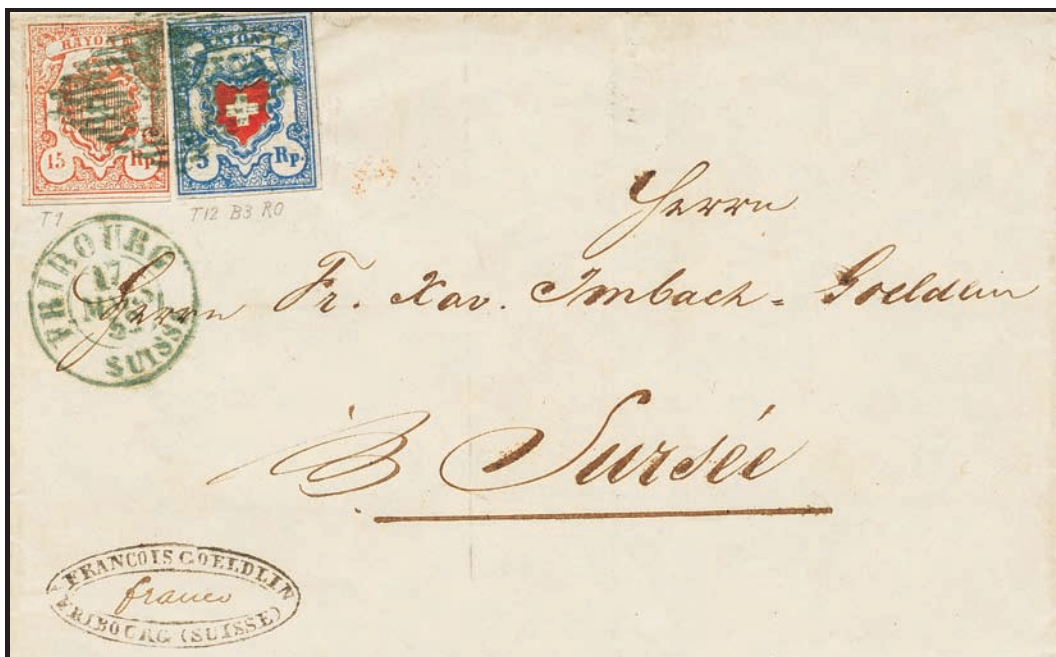 RAYON III
15 Rp.
RAYON I
5 Rp.
T1
T12 B3 RO
FRIBOURG
17
SUISSE
Herrn
Herrn Fr. Xav. Imbach = Goeldlin
Sursée
FRANCOIS GOELDLIN
franco
FRIBOURG (SUISSE)